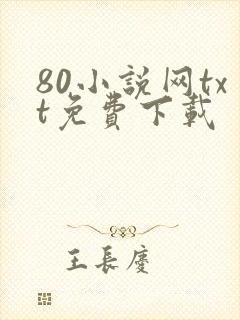 80小説网tx
t免費下載
王長慶